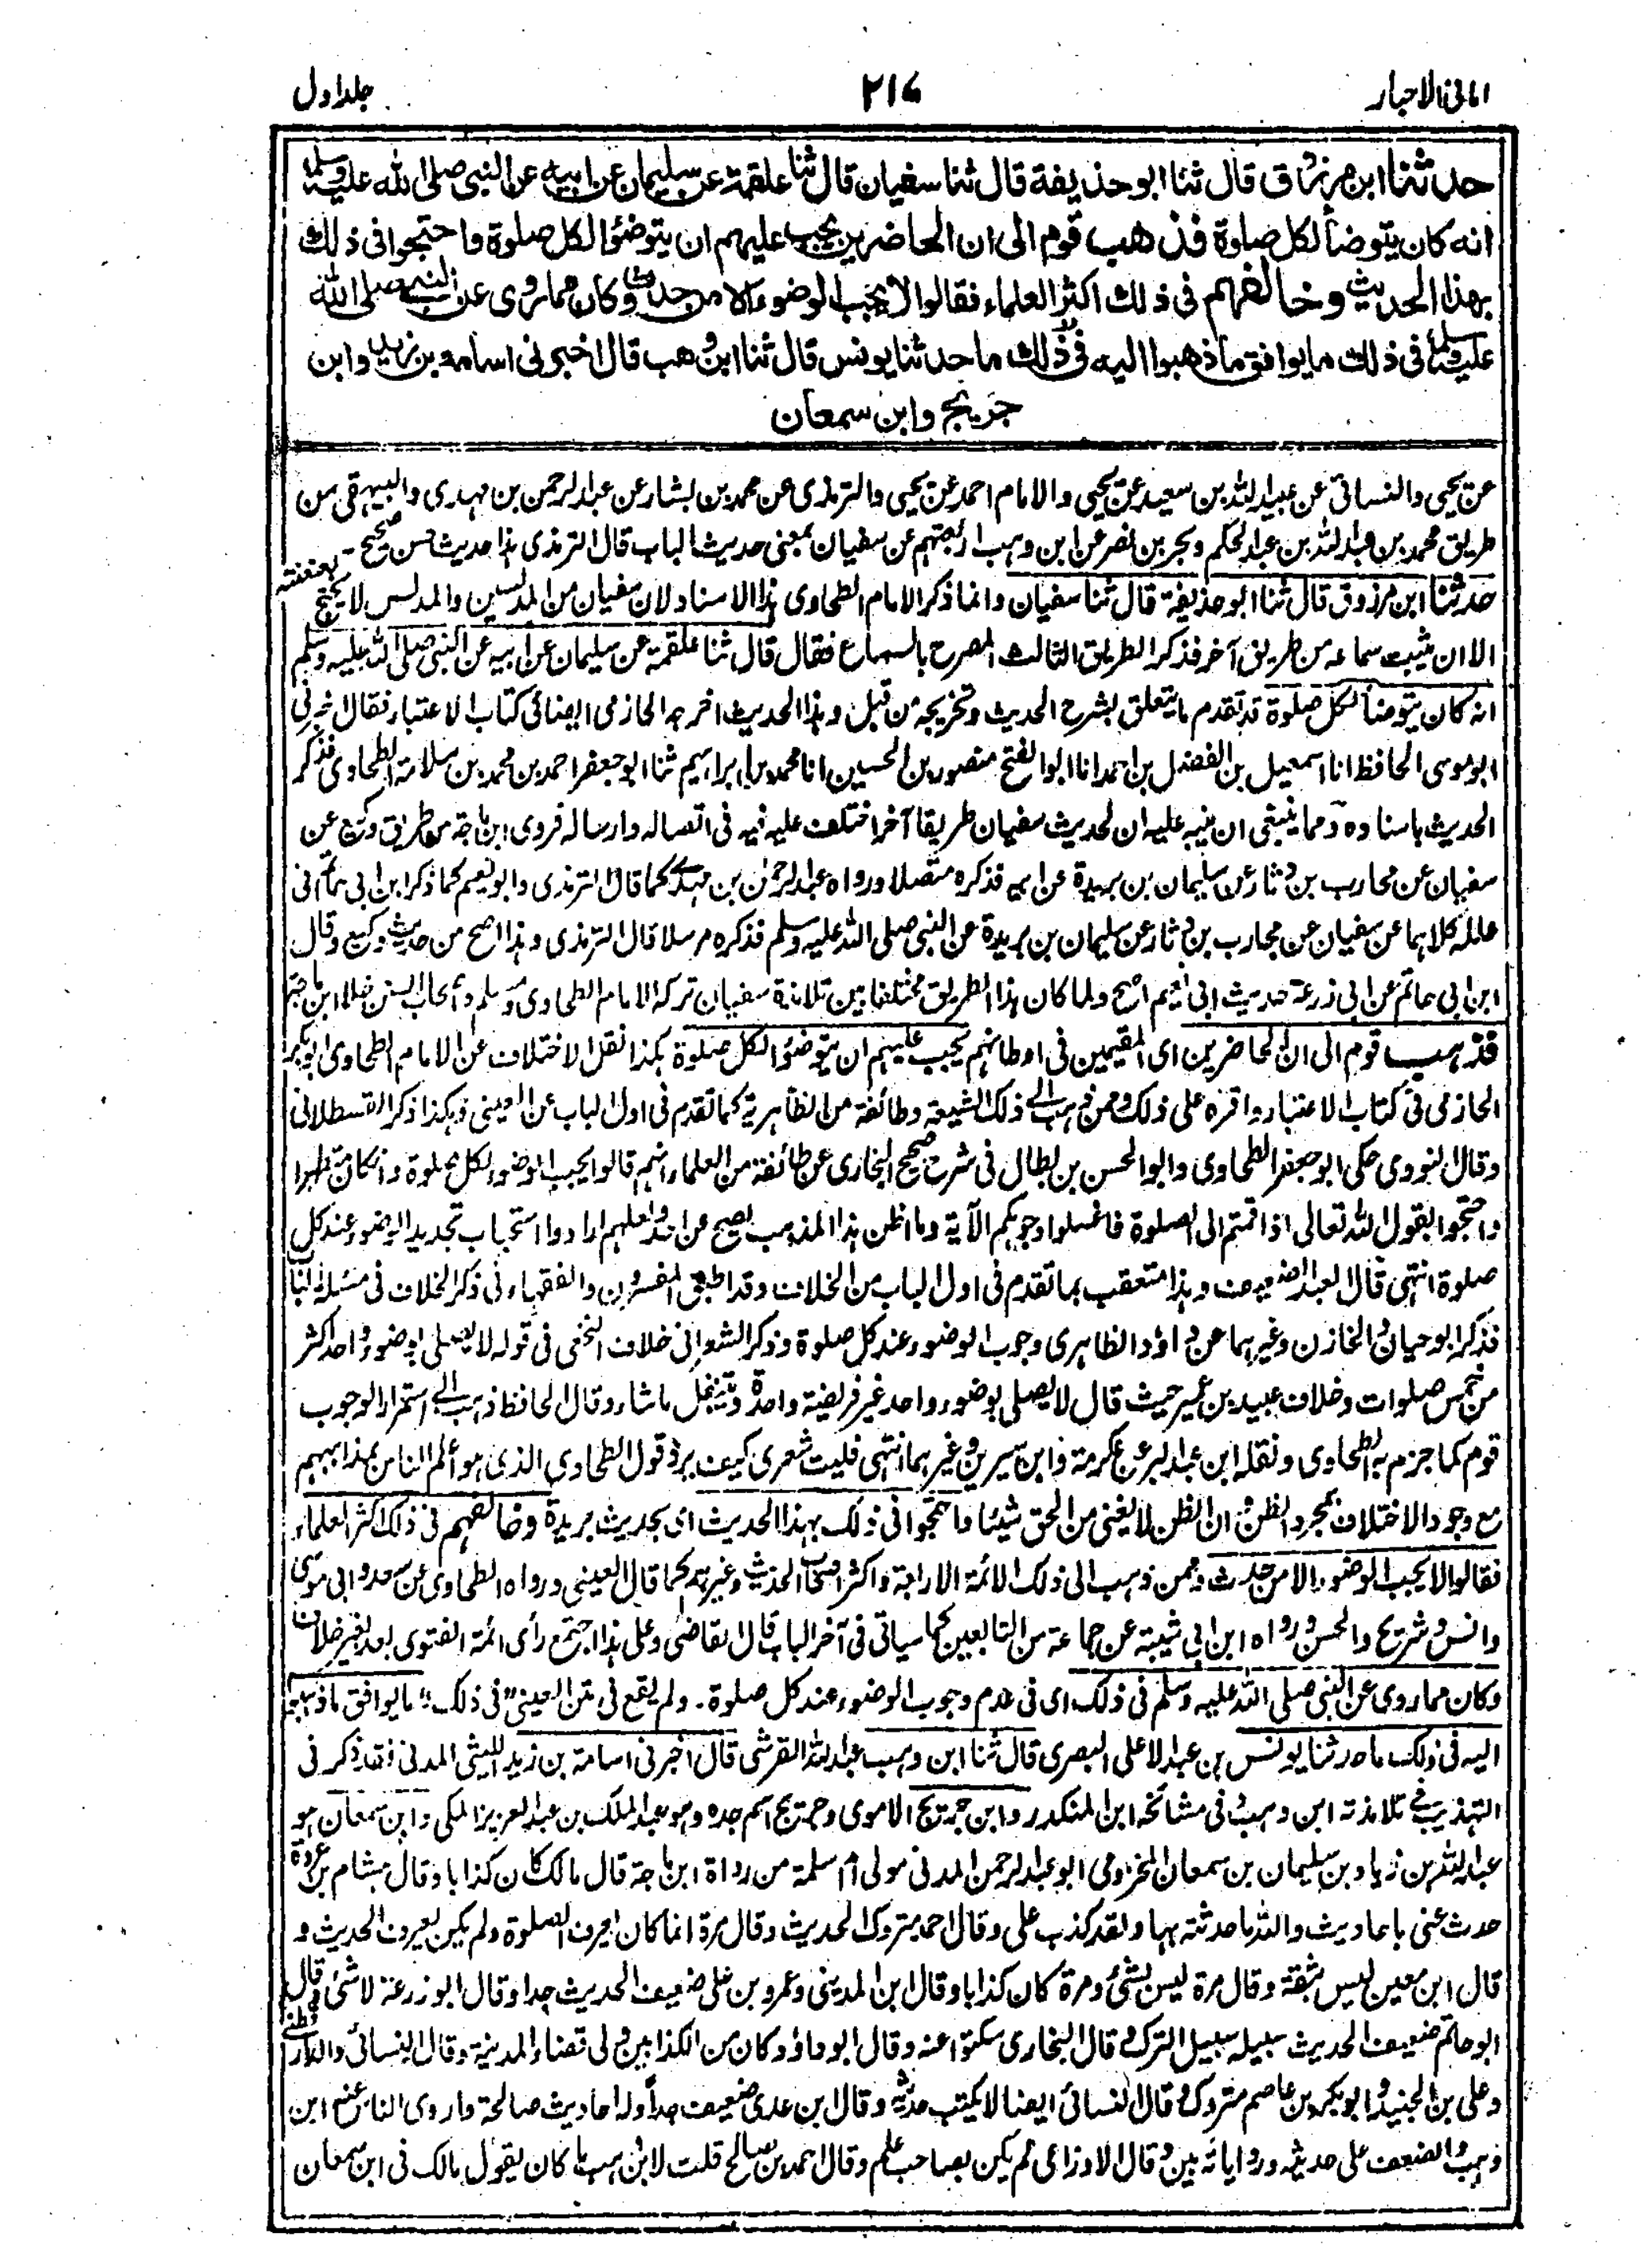 امانی الاحبار
۲۱۷
جلد اول
حدثنا ابن مرزوق قال ثنا ابو حذيفة قال ثنا سفيان قال ثنا علقمة عن سليمان عن ابيه عن النبي صلى الله عليه وسلم
انه كان يتوضأ لكل صلوة فذهب قوم الى ان الحاضرين يجب عليهم ان يتوضئوا لكل صلوة واحتجوا فى ذلك
بهذا الحديث وخالفهم فى ذلك اكثر العلماء فقالوا لا يجب الوضوء الا من حدث وكان مما روى عن النبي صلى الله
عليه وسلم فى ذلك ما يوافق ما ذهبوا اليه فى ذلك ما حدثنا يونس قال ثنا ابن وهب قال اخبرنى اسامه بن زيد وابن
جريج وابن سمعان
عن يحيى والنسائى عن عبيد الله بن سعيد عن يحيى والامام احمد عن يحيى والترمذى عن محمد بن بشار عن عبد الرحمن بن مهدى والبيهقى من
طريق محمد بن عبد الله بن عبد الحكم وبحر بن نصر عن ابن وهب اربعتهم عن سفيان بمعنى حديث الباب قال الترمذى هذا حديث حسن صحيح -
حدثنا ابن مرزوق قال ثنا ابو حذيفة قال ثنا سفيان وانما ذكر الامام الطحاوى هذا الاسناد لان سفيان من المدلسين والمدلس لا يحتج بعنعنته
الا ان يثبت سماعه من طريق آخر فذكر الطريق الثالث المصرح بالسماع فقال قال ثنا علقمة عن سليمان عن ابيه عن النبى صلى الله عليه وسلم
انه كان يتوضأ لكل صلوة قد تقدم ما يتعلق بشرح الحديث وتخريجه من قبل وهذا الحديث اخرجه الحازمى ايضا فى كتاب الاعتبار فقال اخبرنى
ابو موسى الحافظ انا اسمعيل بن الفضل بن احمد انا ابو الفتح منصور بن الحسين انا محمد بن ابراهيم ثنا ابو جعفر احمد بن محمد بن سلامة الطحاوى فذكر
الحديث باسناده ومما ينبغى ان ينبه عليه ان لحديث سفيان طريقا آخر اختلف عليه فيه فى اتصاله وارساله فروى ابن ماجة من طريق وكيع عن
سفيان عن محارب بن دثار عن سليمان بن بريدة عن ابيه فذكره متصلا ورواه عبد الرحمن بن مهدى كما قال الترمذى وابو نعيم كما ذكر ابن ابى حاتم فى
علله كلاهما عن سفيان عن محارب بن دثار عن سليمان بن بريدة عن النبى صلى الله عليه وسلم فذكره مرسلا قال الترمذى وهذا اصح من حديث وكيع وقال
ابن ابى حاتم عن ابى زرعة حديث ابى نعيم اصح ولما كان هذا الطريق مختلفا بين تلامذة سفيان تركه الامام الطحاوى ومسلم واصحاب السنن خلا ابن ماجة
فذهب قوم الى ان الحاضرين اى المقيمين فى اوطانهم يجب عليهم ان يتوضئوا لكل صلوة هكذا نقل الاختلاف عن الامام الطحاوى ابو بكر
الحازمى فى كتاب الاعتبار واقره على ذلك وممن ذهب الى ذلك الشيعة وطائفة من الظاهرية كما تقدم فى اول الباب عن العينى وهكذا ذكر القسطلانى
وقال النووى حكى ابو جعفر الطحاوى وابو الحسن بن بطال فى شرح صحيح البخارى عن طائفة من العلماء انهم قالوا يجب الوضوء لكل صلوة وان كان متطهرا
واحتجوا بقول الله تعالى اذا قمتم الى الصلوة فاغسلوا وجوهكم الآية وما اظن هذا المذهب يصح عن احد ولعلهم ارادوا استحباب تجديد الوضوء عند كل
صلوة انتهى قال العبد الضعيف وهذا متعقب بما تقدم فى اول الباب من الخلاف وقد اطبق المفسرون والفقهاء فى ذكر الخلاف فى مسئلة الباب
فذكر ابو حيان والخازن وغيرهما عن داؤد الظاهرى وجوب الوضوء عند كل صلوة وذكر الشعرانى خلاف النخعى فى قوله لا يصلى بوضوء واحد اكثر
من خمس صلوات وخلاف عبيد بن عمير حيث قال لا يصلى بوضوء واحد غير فريضة واحدة ويتنفل ما شاء وقال الحافظ ذهب الى استمرار الوجوب
قوم كما جزم به الطحاوى ونقله ابن عبد البر عن عكرمة وابن سيرين وغيرهما انتهى فليت شعرى كيف يرد قول الطحاوى الذى هو اعلم الناس بمذاهبهم
مع وجود الاختلاف بمجرد الظن ان الظن لا يغنى من الحق شيئا واحتجوا فى ذلك بهذا الحديث اى بحديث بريدة وخالفهم فى ذلك اكثر العلماء
فقالوا لا يجب الوضوء الا من حدث وممن ذهب الى ذلك الائمة الاربعة واكثر اصحاب الحديث وغيرهم كما قال العينى ورواه الطحاوى عن سعد وابى موسى
وانس وشريح والحسن ورواه ابن ابى شيبة عن جماعة من التابعين كما سياتى فى آخر الباب قال القاضى وعلى هذا اجتمع رأى ائمة الفتوى بعد بغير خلاف
وكان مما روى عن النبى صلى الله عليه وسلم فى ذلك اى فى عدم وجوب الوضوء عند كل صلوة - ولم يقع فى متن العينى "فى ذلك" ما يوافق ما ذهبوا
اليه فى ذلك ما حدثنا يونس بن عبد الاعلى البصرى قال ثنا ابن وهب عبد الله القرشى قال اخبرنى اسامة بن زيد الليثى المدنى فقد ذكر فى
التهذيب فى تلامذته ابن وهب وفى مشائخه ابن المنكدر وابن جريج الاموى وجريج اسم جده وهو عبد الملك بن عبد العزيز المكى وابن سمعان هو
عبد الله بن زياد بن سليمان بن سمعان المخزومى ابو عبد الرحمن المدنى مولى ام سلمة من رواة ابن ماجة قال مالك كان كذابا وقال هشام بن عروة
حدث عنى باحاديث والله ما حدثته بها ولقد كذب على وقال احمد متروك الحديث وقال مرة انما كان يعرف الصلوة ولم يكن يعرف الحديث و
قال ابن معين ليس بثقة وقال مرة ليس بشئ ومرة كان كذابا وقال ابن المدينى وعمرو بن على ضعيف الحديث جدا وقال ابو زرعة لا شئ وقال
ابو حاتم ضعيف الحديث سبيله سبيل الترك وقال البخارى سكتوا عنه وقال ابو داؤد كان من الكذابين ولى قضاء المدينة وقال النسائى والدارقطنى
وعلى بن الجنيد وابو بكر بن عاصم متروك وقال النسائى ايضا لا يكتب حديثه وقال ابن عدى ضعيف جدا وله احاديث صالحة واروى الناس عنه ابن
وهب والضعف على حديثه ورواياته بين وقال الاوزاعى لم يكن بصاحب علم وقال احمد بن صالح قلت لابن وهب ما كان يقول مالك فى ابن سمعان